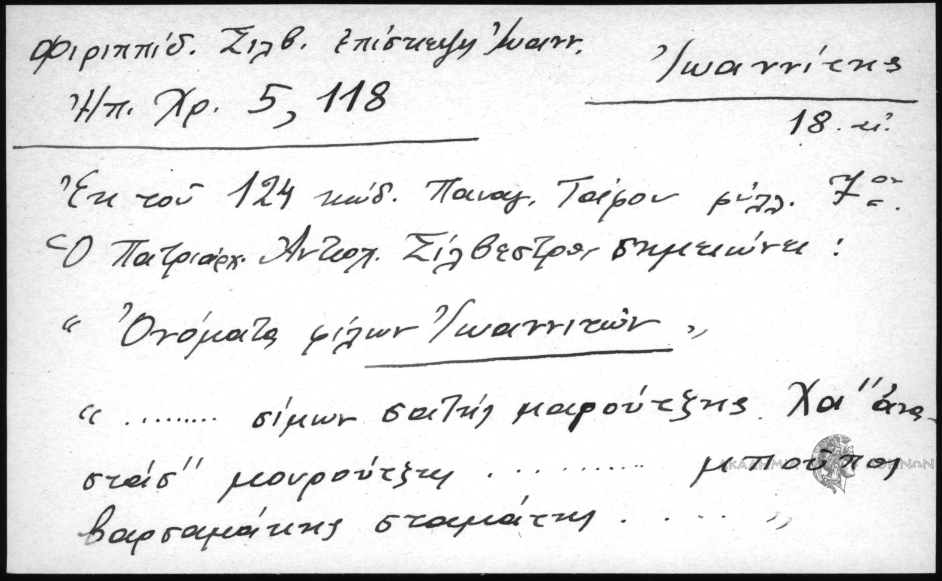 Φιλιππίδ. Σιλβ. Ἐπίσκεψη Ἰωανν.
Ἠπ. Χρ. 5, 118
Ἰωαννίτης
18. αἰ.
Ἐκ τοῦ 124 κώδ. Παναγ. Τάφου φύλλ. 7ον.
Ὁ Πατριάρχ. Ἀντιοχ. Σίλβεστρος σημειώνει :
“ Ὀνόματα φίλων Ἰωαννιτῶν „
“ ........ σίμων σατήλ μαρούτζης. Χα" ἀνα-
στάσ" μουρούτζης .......... μποῦπος
βαρσαμάκης σταμάτης ..... „